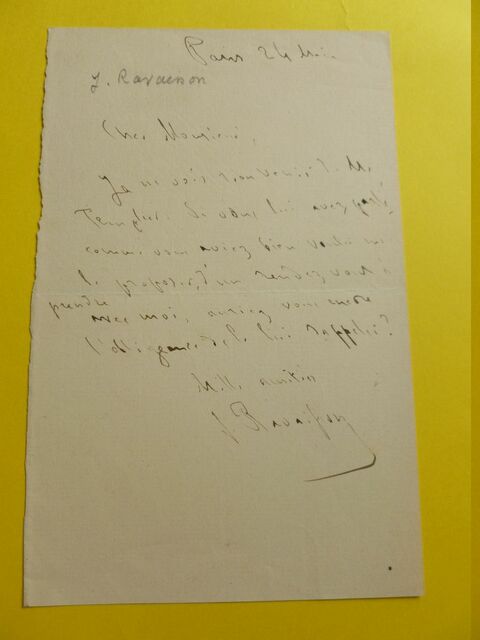 Paris 24 Mai
J. Ravaisson
Cher Monsieur,
Je ne vois rien venir de M.
Si vous lui avez parlé
comme vous aviez bien voulu me
le proposer, d'un rendez-vous à
prendre
avec moi, auriez vous encore
l'obligeance de le lui rappeler?
Mille amitiés
f. Ravaisson